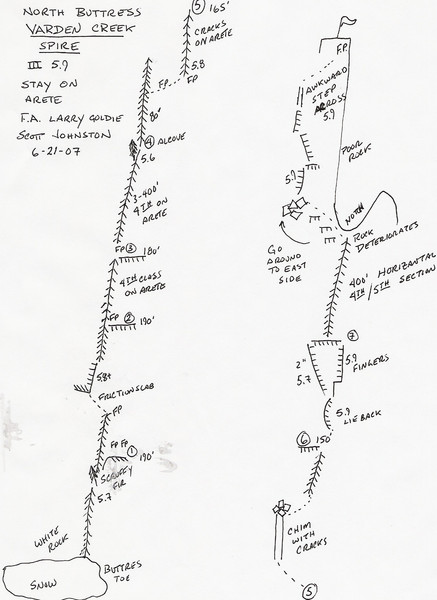 NORTH BUTTRESS
VARDEN CREEK
SPIRE
III 5.9
STAY ON
ARETE
F.A. LARRY GOLDIE
SCOTT JOHNSTON
6-21-07
⑤ 165'
CRACKS
ON ARETE
5.8
FP
FP
80'
④ ALCOVE
5.6
3-400'
4TH ON
ARETE
FP ③ 180'
4TH CLASS
ON ARETE
FP ② 190'
5.8+
FRICTION SLAB
FP
FP FP ① 190'
SCRUFFY
FIR
5.7
WHITE
ROCK
BUTTRES
TOE
SNOW
F.P.
AWKWARD
STEP
ACROSS
5.9
POOR
ROCK
5.9
NOTCH
ROCK
DETERIORATES
GO
AROUND
TO EAST
SIDE
400' HORIZANTAL
4TH/5TH SECTION
⑦
2"
5.7
5.9
FINGERS
5.9
LIEBACK
⑥ 150'
CHIM
WITH
CRACKS
⑤